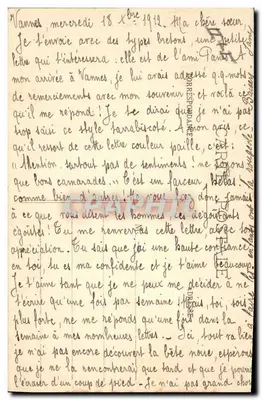 Vannes, mercredi 18 Xbre, 1912. Ma chère sœur,
Je t'envoie avec des types bretons, une petite
lettre qui t'intéressera : elle est de l'ami Paul. A
mon arrivée à Vannes, je lui avais adressé q.q. mots
de remerciements avec mon souvenir et voilà ce
qu'il me répond ! Je te dirai que je n'ai pas
trop saisi ce style tarabiscoté. A mon avis, ce
qu'il ressort de cette lettre couleur paille, c'est :
"Attention surtout pas de sentiments ! ne soyons
que bons camarades. C'est un farceur,
comme donc jamais
à ce que vous disent les hommes. Arrogants
égoïstes ! Tu me renverras cette lettre avec ton
appréciation. Tu sais que j'ai une haute confiance
en toi, tu es ma confidente et je t'aime beaucoup.
Je t'aime tant que je ne peux me décider à ne
t'écrire qu'une fois par semaine. Mais toi, sois
plus forte, ne me réponds qu'une fois dans la
semaine à mes nombreuses lettres. Ici, tout va bien,
je n'ai pas encore découvert la bête noire, espérons
que je ne la rencontrerai que tard et que je pourrai
l'écraser d'un coup de pied. Je n'ai pas grand chose
CORRESPONDANCE
ADRESSE